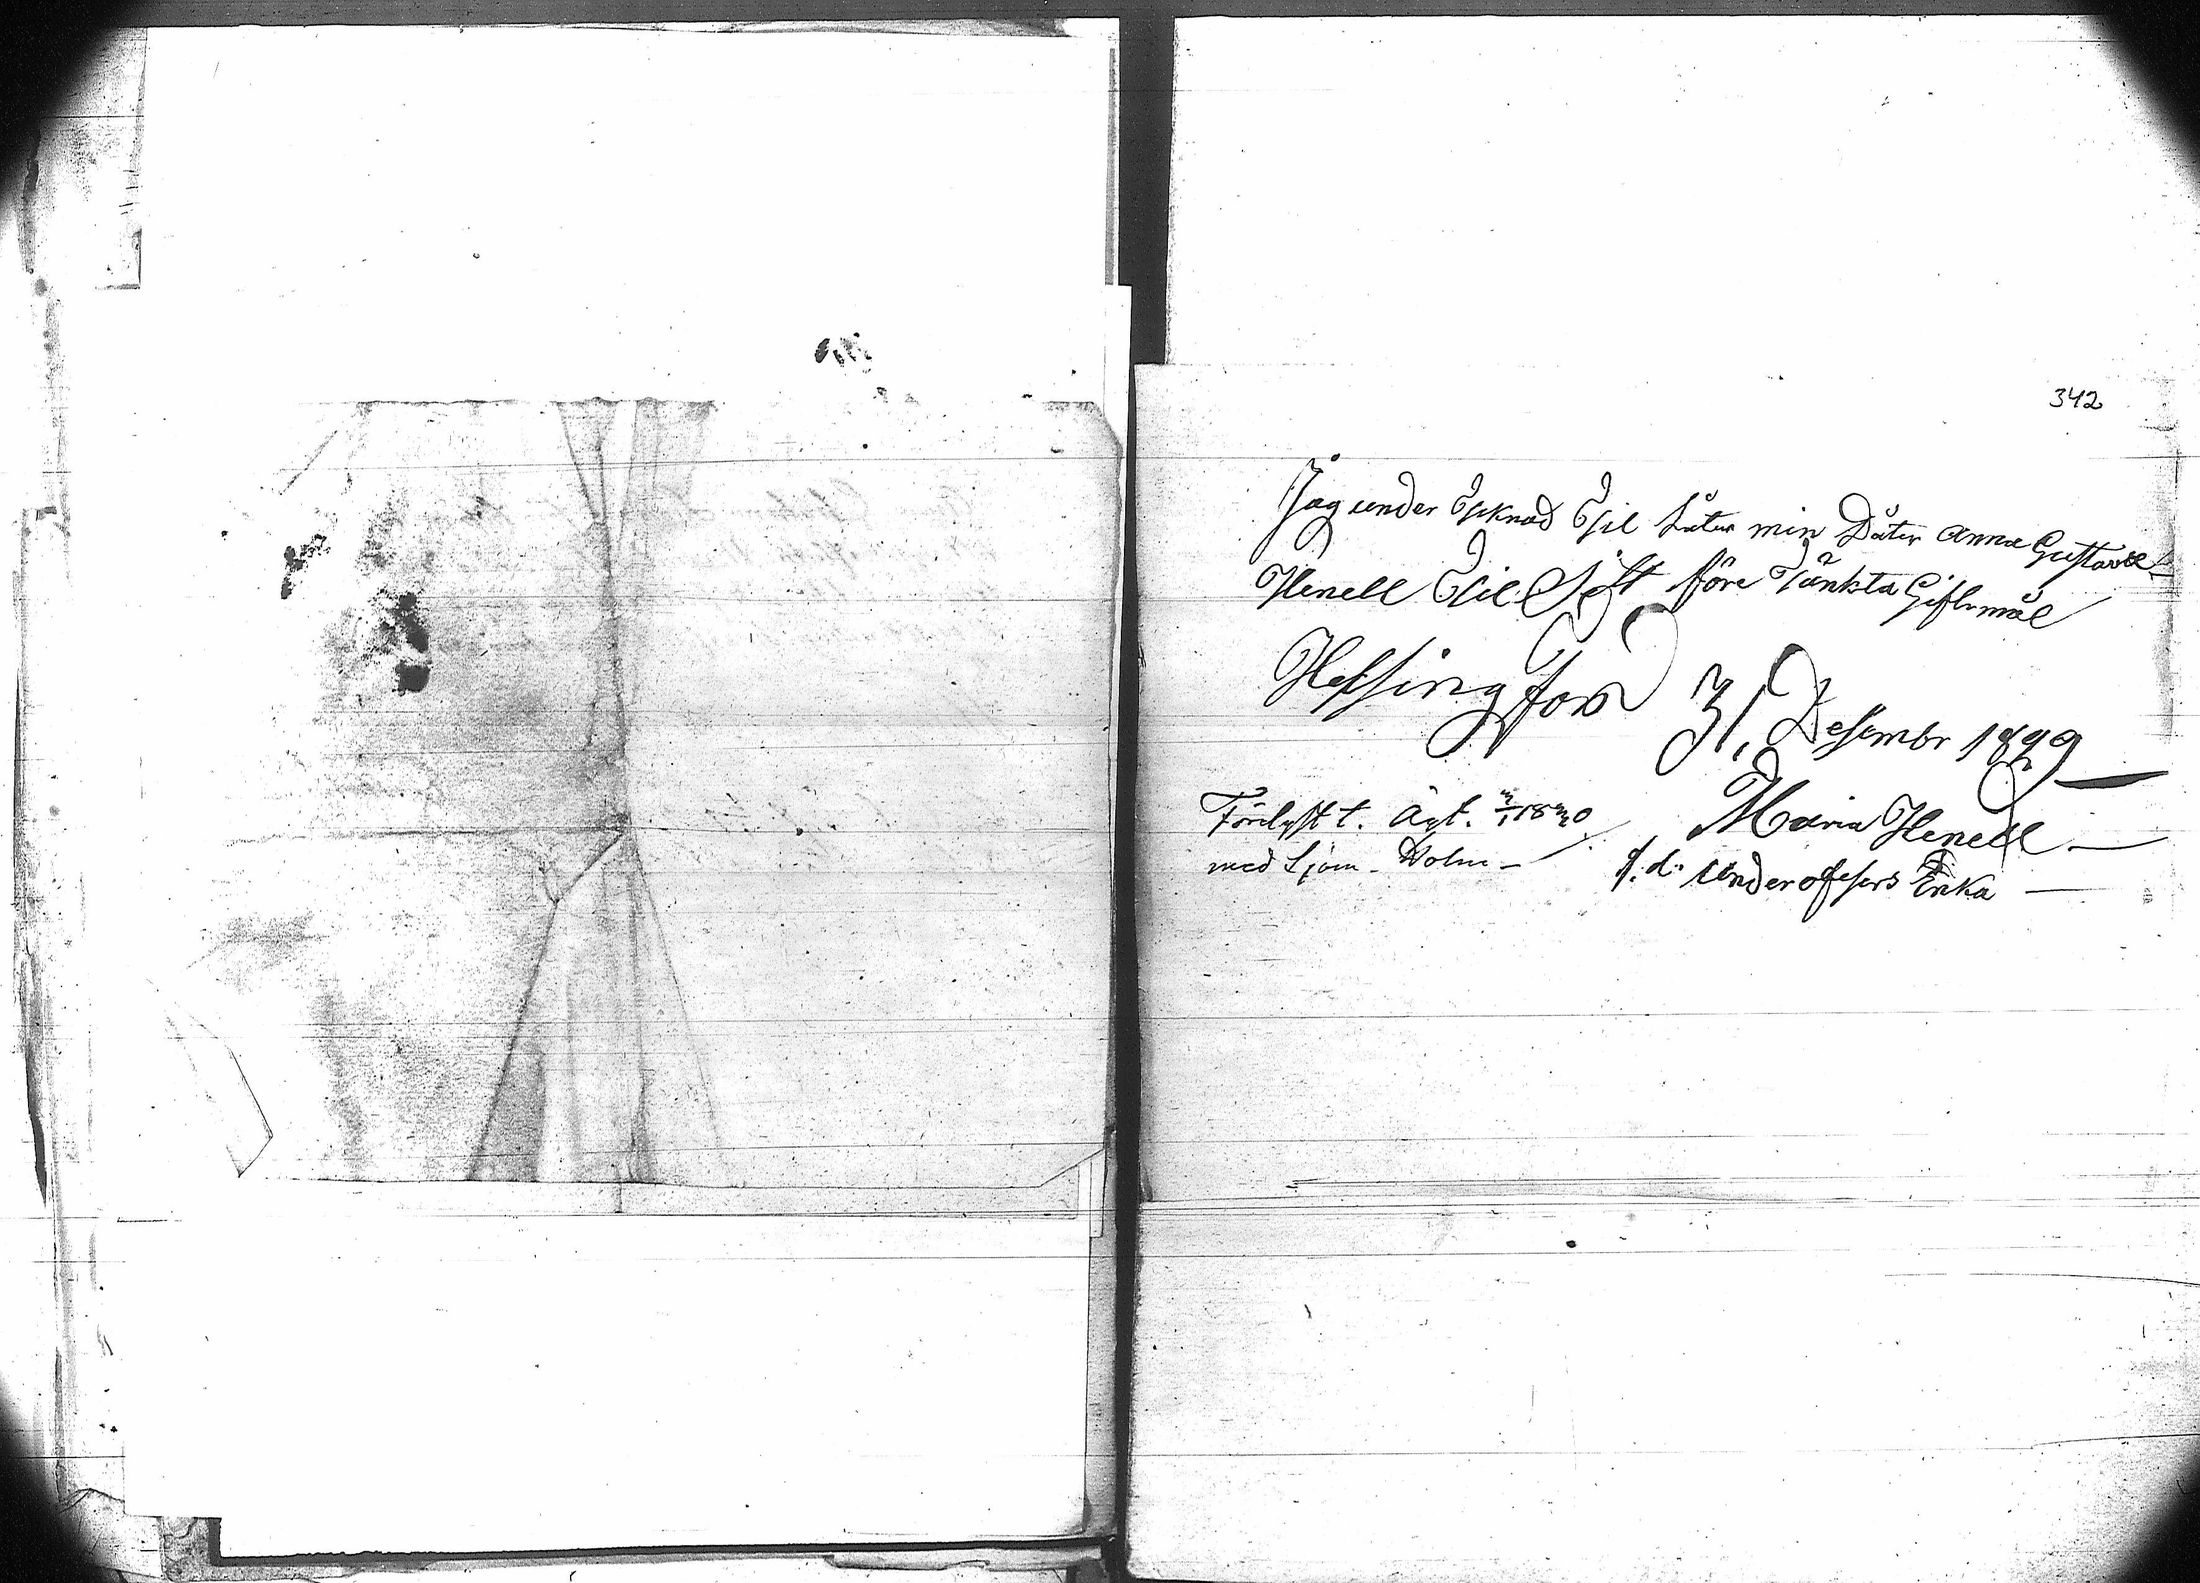 342
Jag under Tecknad Til Låter min Dåter Anna Gustava
Henell Til Sitt före Tänkta Giftermål
Helsingfors 31, Desembr 1829
Maria Henell
f.d. underofesers Enka
Förelyst t. Äkt. 3/1 1830
med Sjöm. Holm